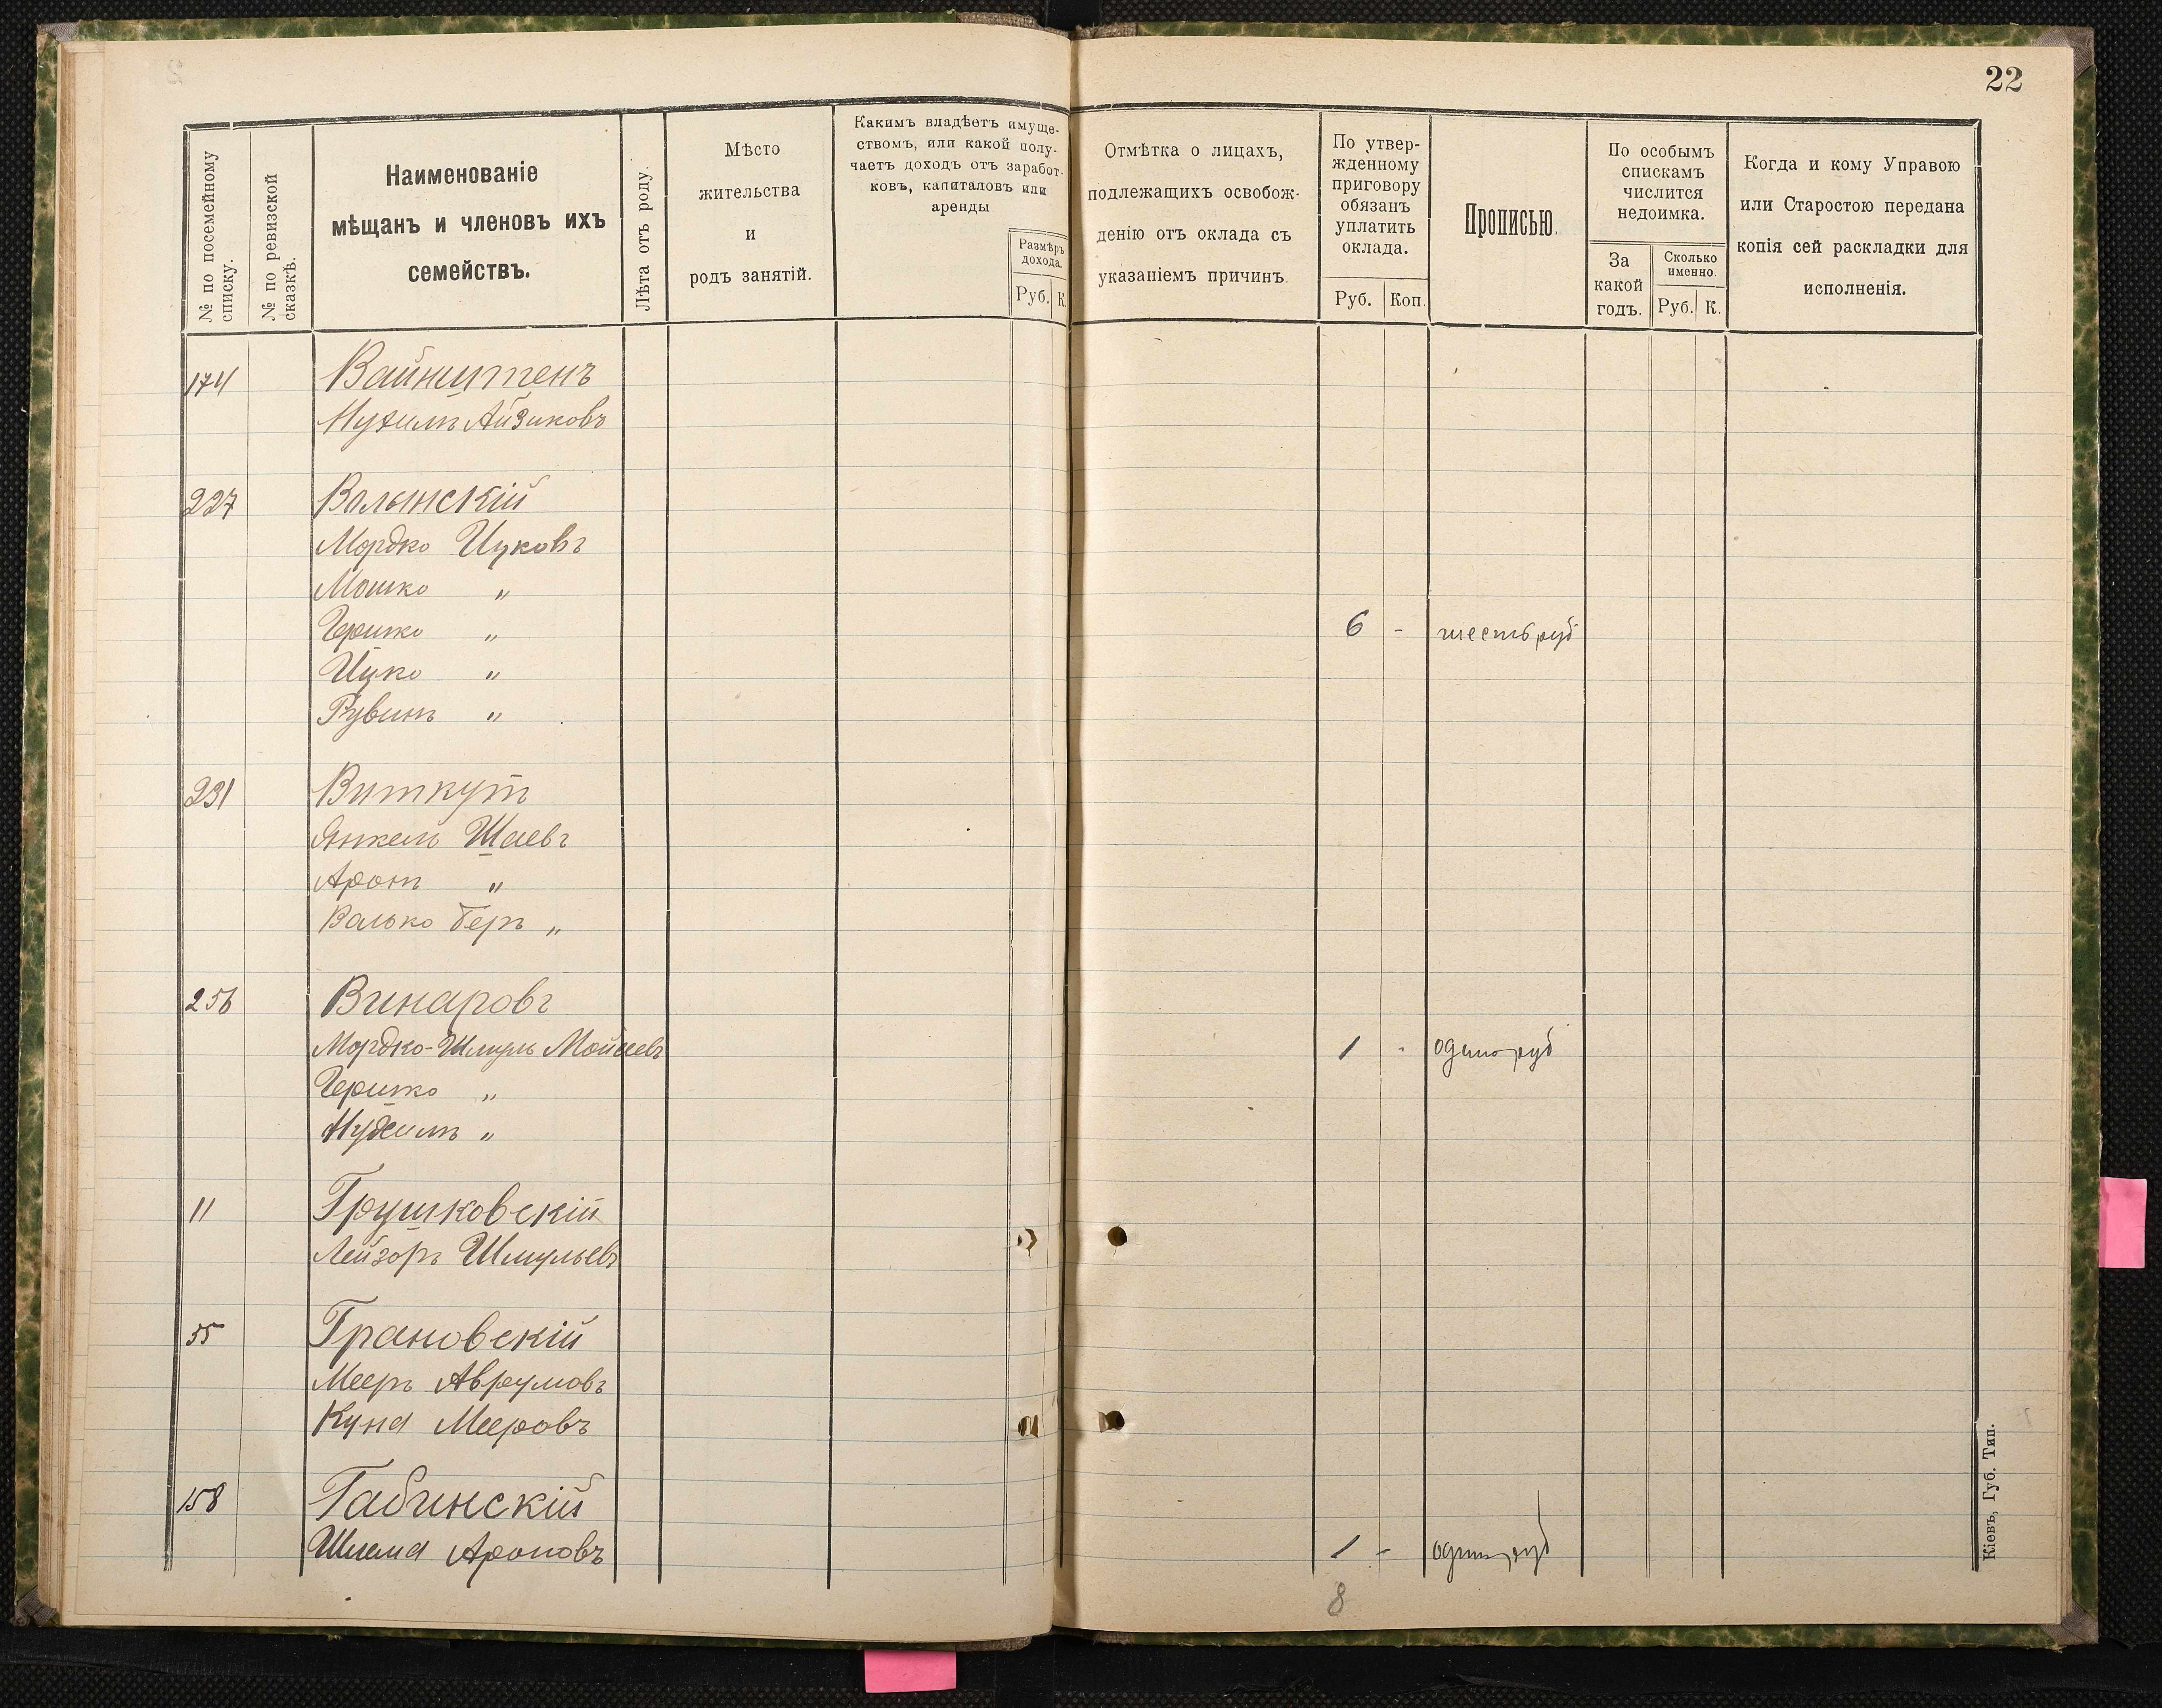 22
№ по посемейному
списку.
№ по ревизской
сказкѣ.
Наименованіе
мѣщанъ и членовъ ихъ
семействъ.
Лѣта отъ роду.
Мѣсто
жительства
и
родъ занятій.
Какимъ владѣетъ имуще-
ствомъ, или какой полу-
чаетъ доходъ отъ заработ-
ковъ, капиталовъ или
аренды
Размѣръ
дохода.
Руб. К.
Отмѣтка о лицахъ,
подлежащихъ освобож-
денію отъ оклада съ
указаніемъ причинъ
По утвер-
жденному
приговору
обязанъ
уплатить
оклада.
Руб. Коп.
Прописью.
По особымъ
спискамъ
числится
недоимка.
За
какой
годъ.
Сколько
именно.
Руб. К.
Когда и кому Управою
или Старостою передана
копія сей раскладки для
исполненія.
174 Вайнштенъ
Нухимъ Айзиковъ
227 Волынскій
Мордко Ицковъ
Мошко "
Гершко " 6 - шесть руб
Ицко "
Рувинъ "
231 Виткупъ
Янкель Шаевъ
Аронъ "
Валько Беръ "
256 Винаровъ
Мордко-Шмуль Мойсеевъ 1 - одинъ руб
Гершко "
"
11 Грушковскій
Лейзоръ Шмульевъ
55 Грановскій
Мееръ Аврумовъ
Куна Мееровъ
158 Габинскій
Шлема Ароновъ 1 - одинъ руб
8
Кіевъ, Губ. Тип.